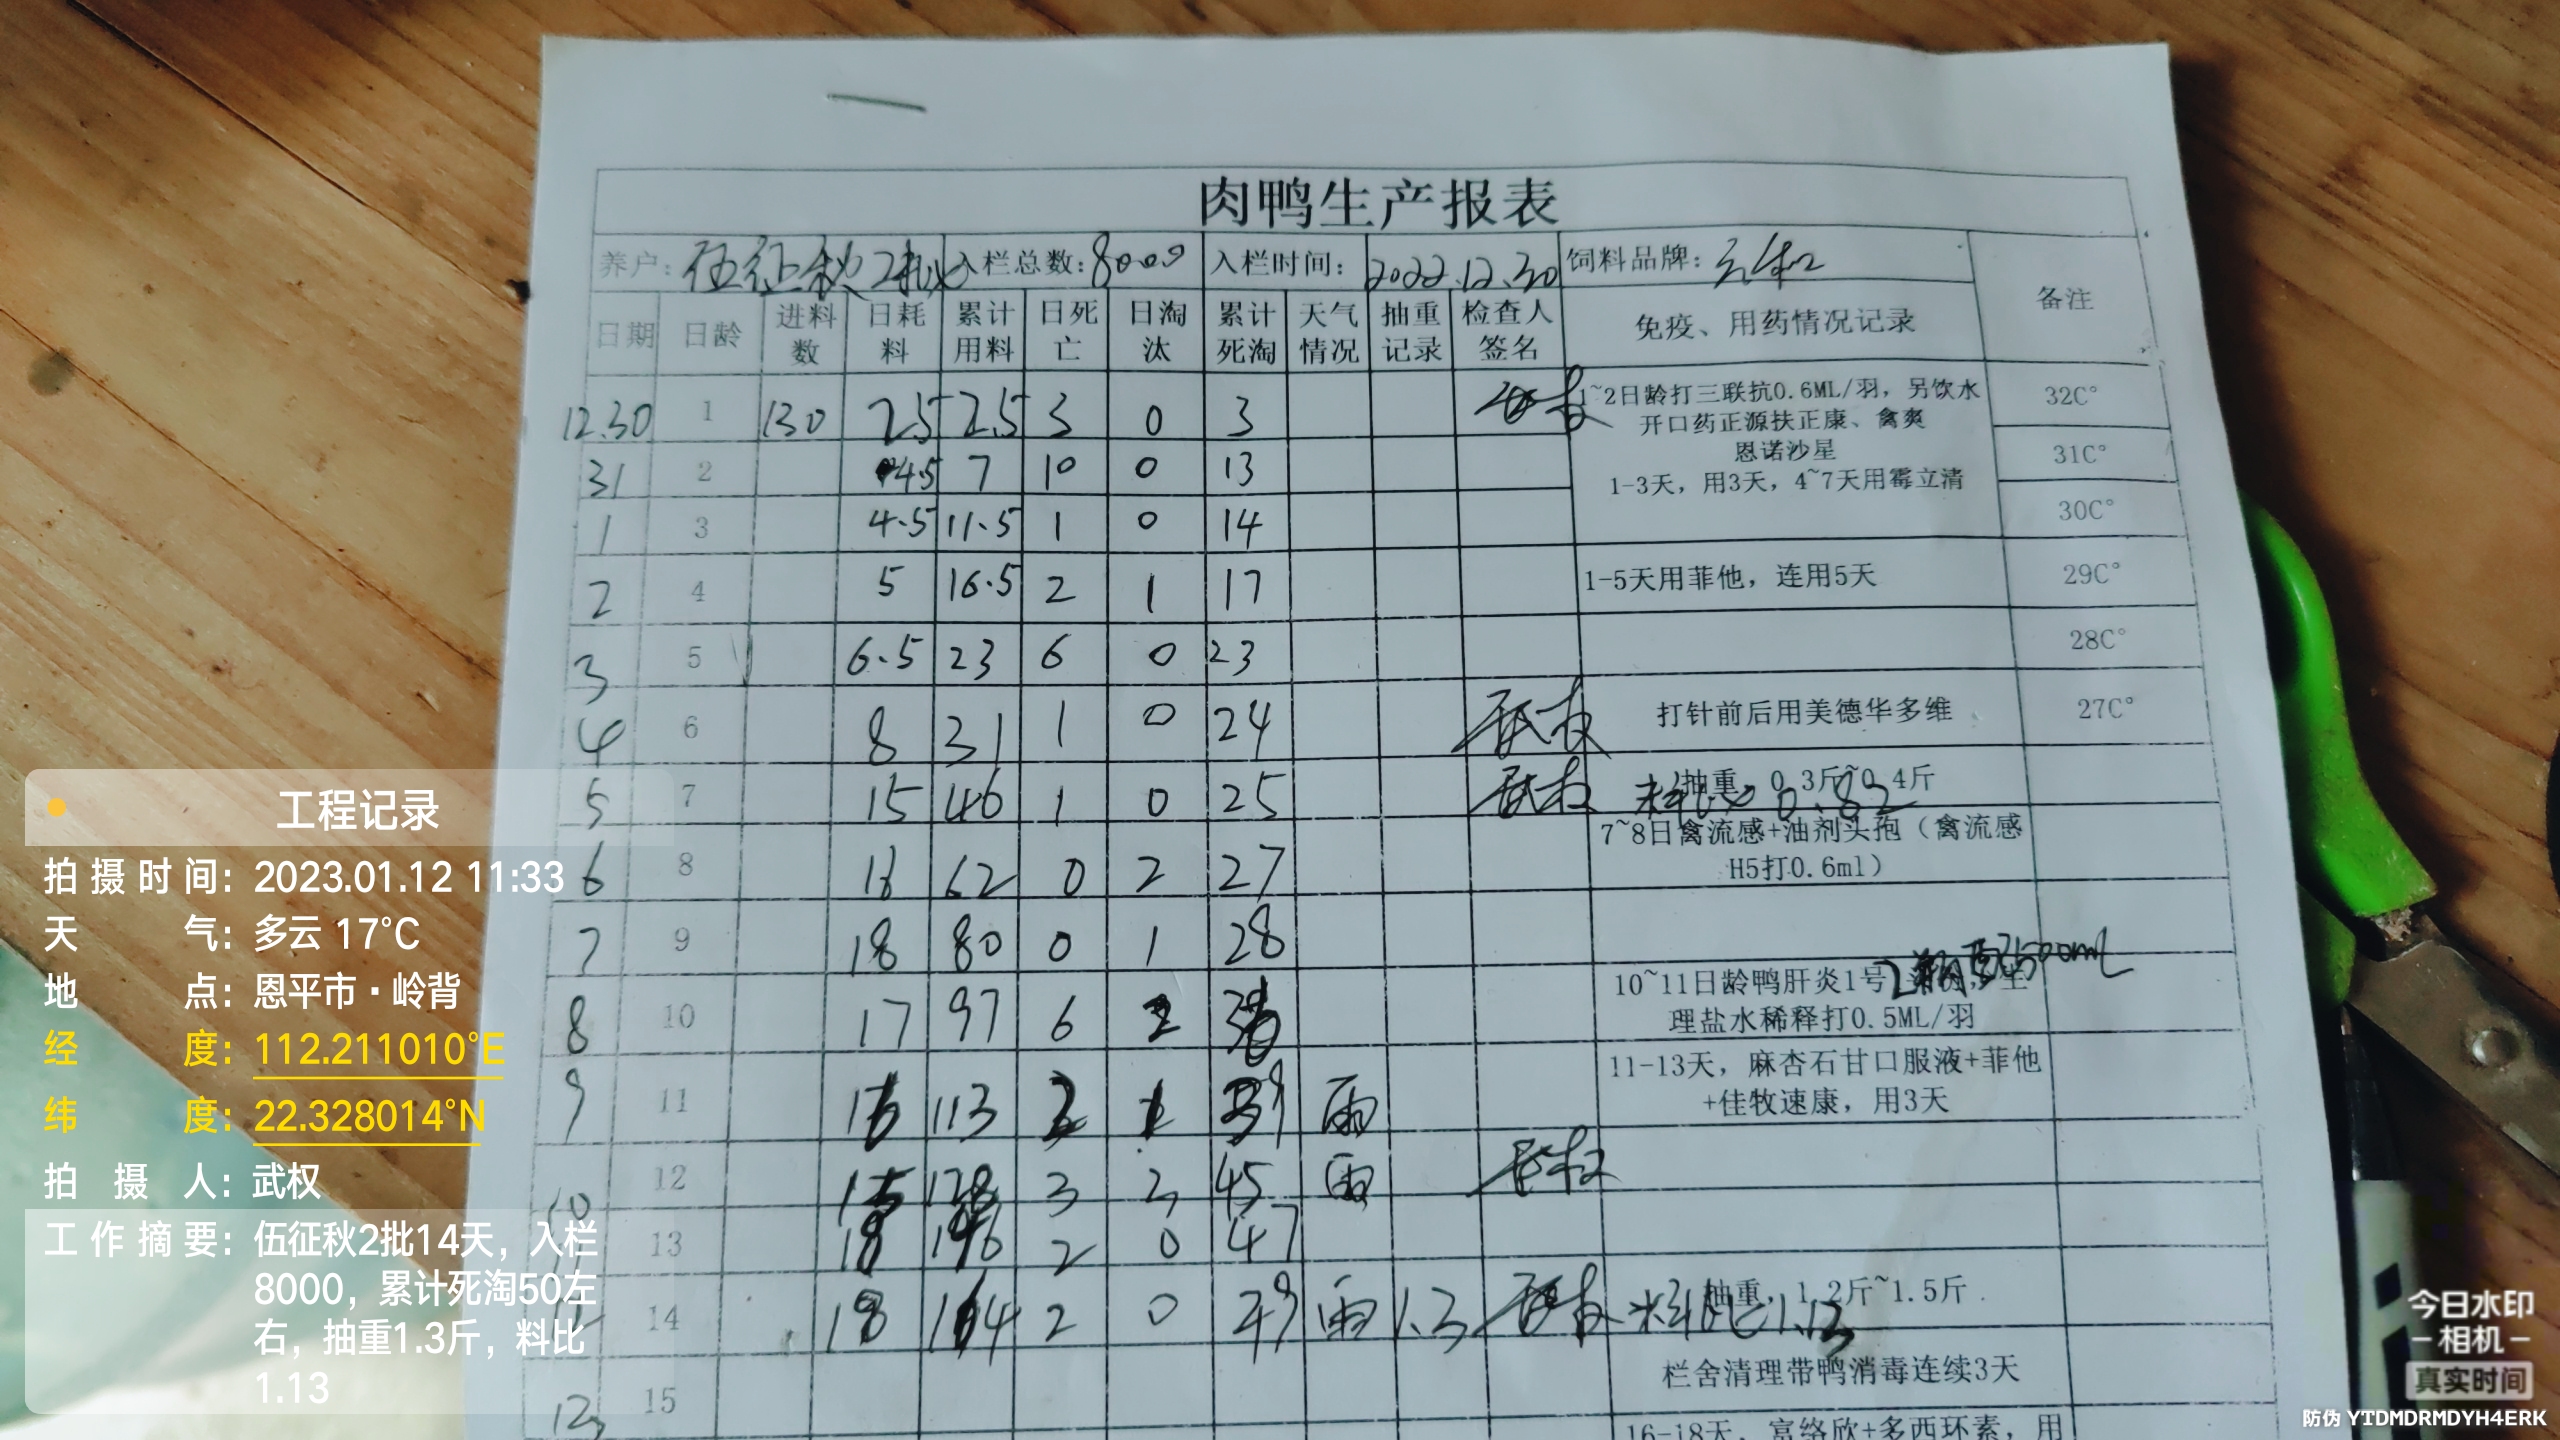 肉鸭生产报表
养户: 伍征秋2批 入栏总数: 8000 入栏时间: 2022.12.30 饲料品牌:
日期 日龄 进料数 日耗料 累计用料 日死亡 日淘汰 累计死淘 天气情况 抽重记录 检查人签名 免疫、用药情况记录 备注
12.30 1 130 2.5 2.5 3 0 3 1~2日龄打三联抗0.6ML/羽, 另饮水 32C°
开口药正源扶正康、禽爽
恩诺沙星
31 2 4.5 7 10 0 13 31C°
1-3天, 用3天, 4~7天用霉立清
1 3 4.5 11.5 1 0 14 30C°
2 4 5 16.5 2 1 17 1-5天用菲他, 连用5天 29C°
3 5 6.5 23 6 0 23 28C°
4 6 8 31 1 0 24 武权 打针前后用美德华多维 27C°
5 7 15 46 1 0 25 武权 抽重, 0.3斤~0.4斤
料比 0.82
6 8 16 62 0 2 27 7~8日禽流感+油剂头孢(禽流感
H5打0.6ml)
7 9 18 80 0 1 28
8 10 17 97 6 2 36 10~11日龄鸭肝炎1号
2瓶 500mL
理盐水稀释打0.5ML/羽
9 11 16 113 2 1 39 雨 11-13天, 麻杏石甘口服液+菲他
+佳牧速康, 用3天
10 12 15 128 3 2 45 雨 武权
13 18 146 2 0 47
14 18 164 2 0 49 雨 1.3 武权 抽重, 1.2斤~1.5斤
料比1.13
13 15 栏舍清理带鸭消毒连续3天
16-18天, 富络欣+多西环素, 用
工程记录
拍摄时间: 2023.01.12 11:33
天气: 多云 17°C
地点: 恩平市·岭背
经度: 112.211010°E
纬度: 22.328014°N
拍摄人: 武权
工作摘要: 伍征秋2批14天, 入栏
8000, 累计死淘50左
右, 抽重1.3斤, 料比
1.13
今日水印
相机
真实时间
防伪 YTDMDRMDYH4ERK